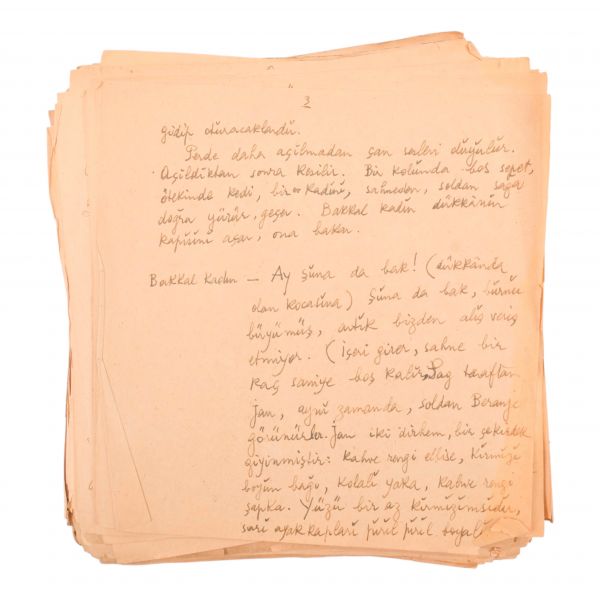 3
gidip oturacaklardır.
Perde daha açılmadan çan sesleri duyulur.
Açıldıktan sonra kesilir. Bir kolunda boş sepet,
ötekinde kedi, bir kadın, sahneden, soldan sağa
doğru yürür, geçer. Bakkal kadın dükkânın
kapısını açar, ona bakar.
Bakkal Kadın — Ay şuna da bak! (dükkânda
olan kocasına) Şuna da bak, burnu
büyümüş, artık bizden alış veriş
etmiyor. (İçeri girer, sahne bir
kaç saniye boş kalır, Sağ taraftan
Jan, aynı zamanda, soldan Beranje
görünürler. Jan iki dirhem, bir çekirdek
giyinmiştir: kahve rengi elbise, kırmızı
boyun bağı, kolalı yaka, kahve rengi
şapka. Yüzü bir az kırmızımsıdır,
sarı ayakkapları pırıl pırıl boyalı